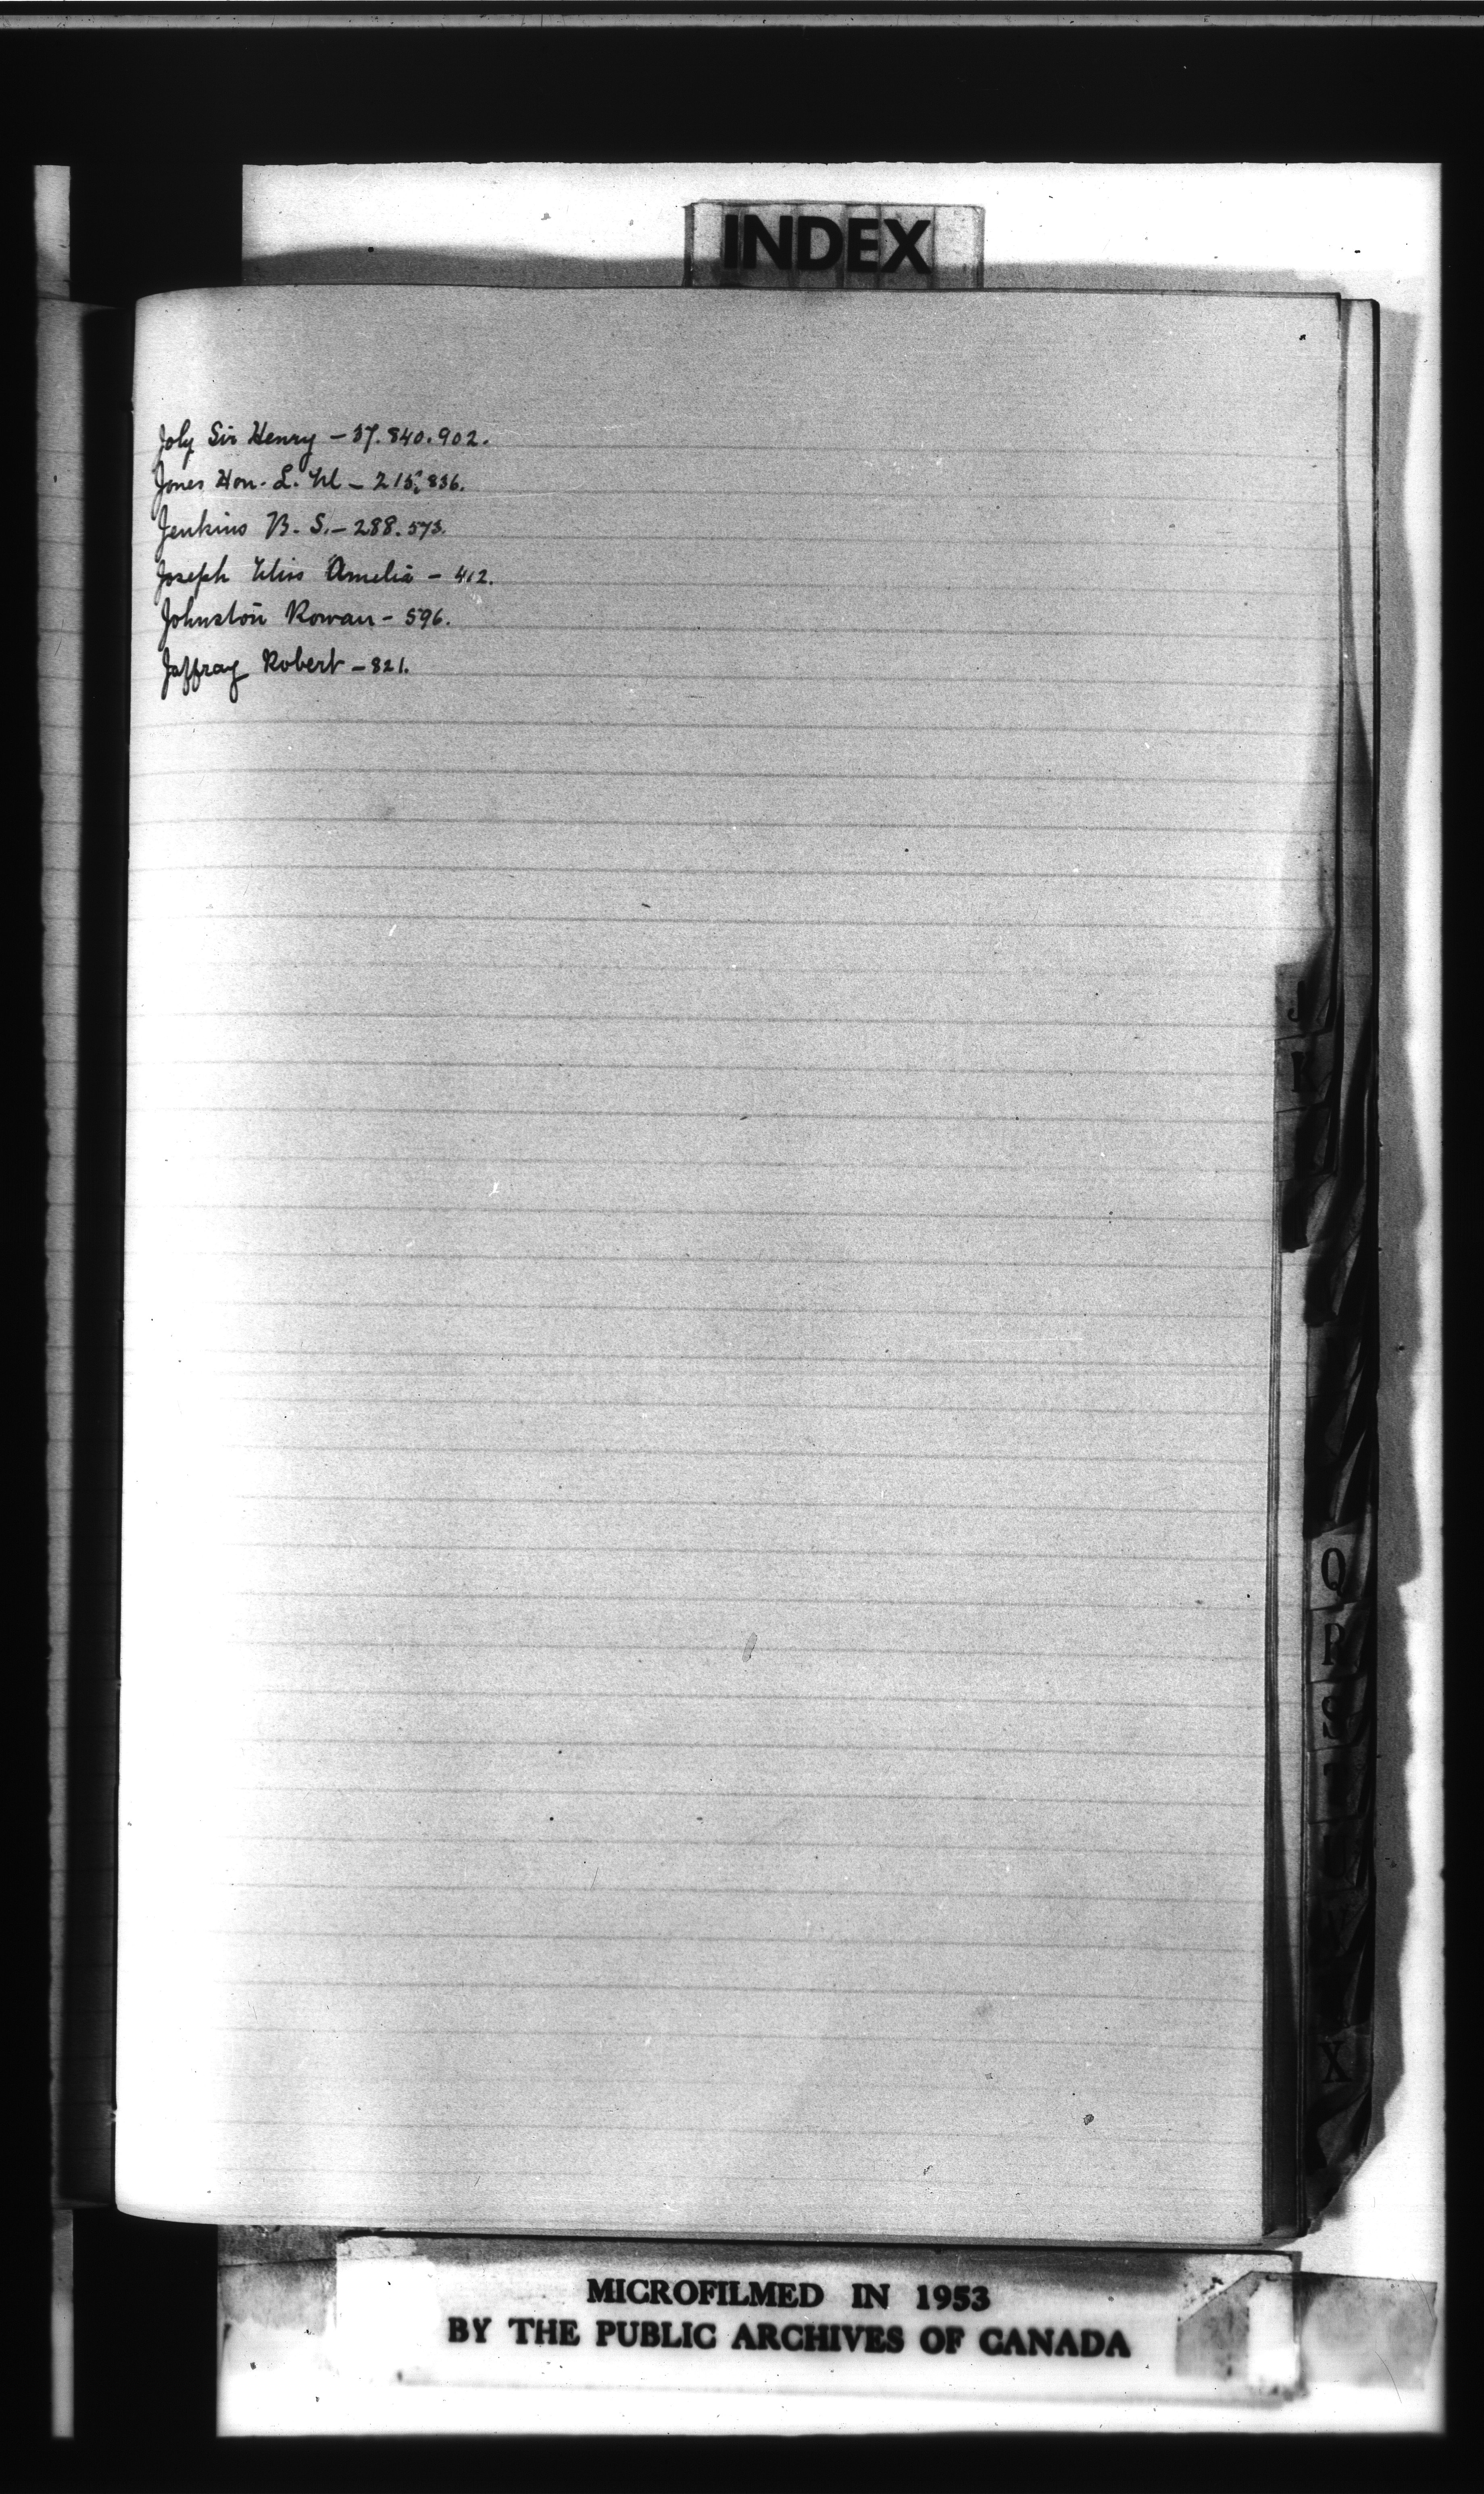 INDEX
Joly Sir Henry – 37. 840. 902.
Jones Hon. L. M – 215. 836.
Jenkins B. S. – 288. 573.
Joseph Miss Amelia – 412.
Johnston Rowan – 596.
Jaffray Robert – 821.
J
K
Q
R
S
X
MICROFILMED IN 1953
BY THE PUBLIC ARCHIVES OF CANADA